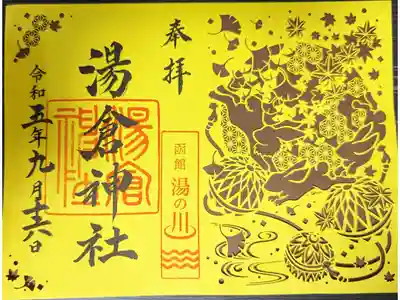 奉拝
湯倉神社
湯倉神社
函館
湯の川
令和五年九月十六日